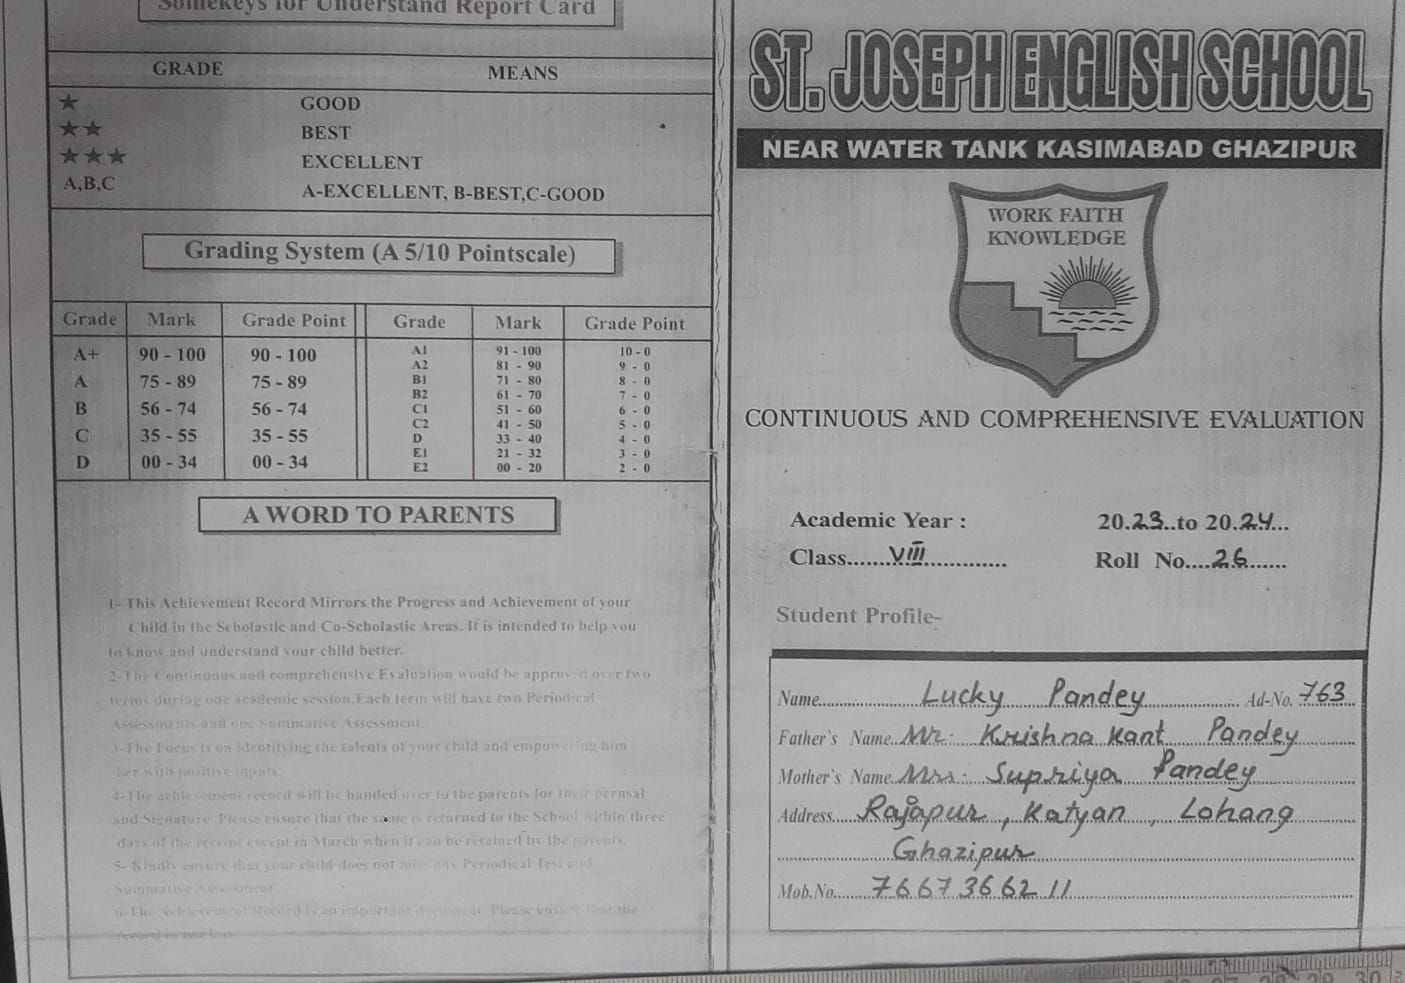 Somekeys for Understand Report Card
GRADE MEANS
★ GOOD
★★ BEST
★★★ EXCELLENT
A,B,C A-EXCELLENT, B-BEST,C-GOOD
Grading System (A 5/10 Pointscale)
Grade Mark Grade Point Grade Mark Grade Point
A+ 90 - 100 90 - 100
A 75 - 89 75 - 89
B 56 - 74 56 - 74
C 35 - 55 35 - 55
D 00 - 34 00 - 34
A1 91 - 100 10 - 0
A2 81 - 90 9 - 0
B1 71 - 80 8 - 0
B2 61 - 70 7 - 0
C1 51 - 60 6 - 0
C2 41 - 50 5 - 0
D 33 - 40 4 - 0
E1 21 - 32 3 - 0
E2 00 - 20 2 - 0
A WORD TO PARENTS
1- This Achievement Record Mirrors the Progress and Achievement of your
Child in the Scholastic and Co-Scholastic Areas. It is intended to help you
to know and understand your child better.
2-The Continuous and comprehensive Evaluation would be approved over two
terms during one academic session.Each term will have two Periodical
Assessments and one Summative Assessment.
3-The Focus is on identifying the talents of your child and empowering him
her with positive inputs.
4-The achievement record will be handed over to the parents for their perusal
and Signature. Please ensure that the same is returned to the School within three
days of the receipt except in March when it can be retained by the parents.
5- Kindly ensure that your child does not miss any Periodical Test and
Summative
6-The Achievement Record is an important document. Please ensure that the
ST. JOSEPH ENGLISH SCHOOL
NEAR WATER TANK KASIMABAD GHAZIPUR
WORK FAITH
KNOWLEDGE
CONTINUOUS AND COMPREHENSIVE EVALUATION
Academic Year : 20.23..to 20.24...
Class.......VIII............... Roll No....26......
Student Profile-
Name.................Lucky Pandey................ Ad-No. 763
Father`s Name..Mr. Krishna Kant Pandey
Mother`s Name.Mrs. Supriya Pandey
Address....Rajapur, Katyan, Lohang
Ghazipur
Mob.No......7667366211
28 29 30